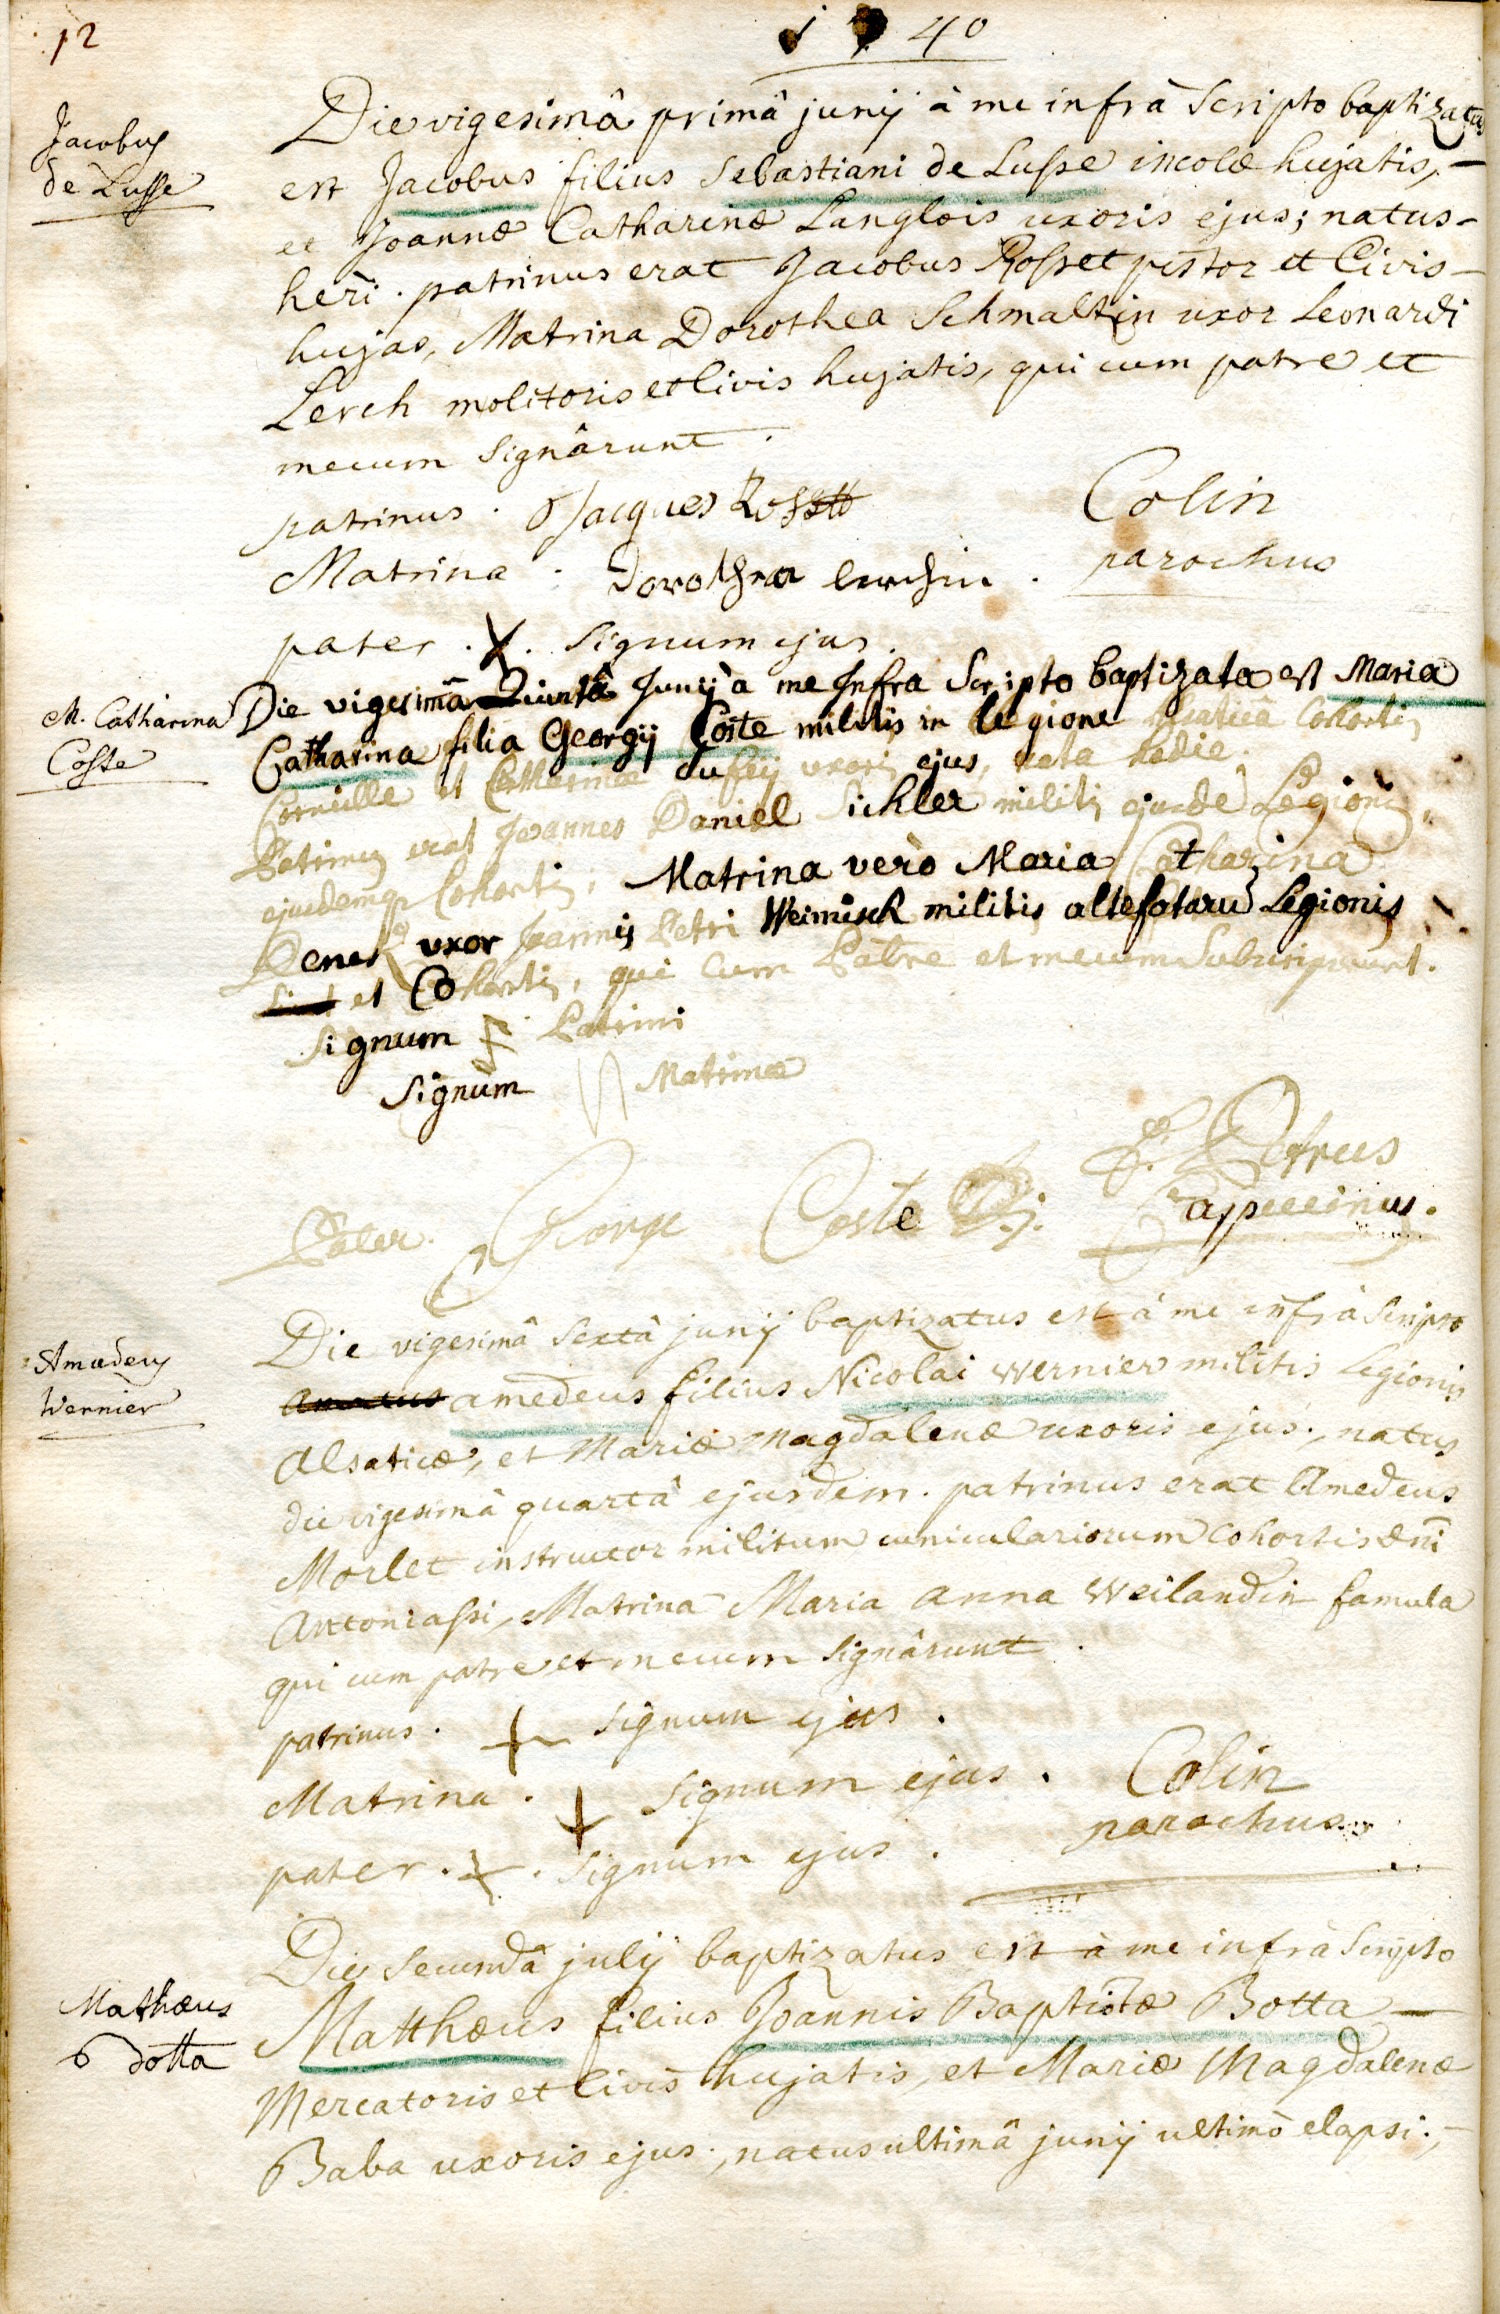 12
1740
Jacobus
de Lusse
Die vigesimâ primâ junij à me infrà Scripto baptizatus
est Jacobus filius Sebastiani de Lusse incolæ hujatis,
et Joannæ Catharinæ Langlois uxoris ejus; natus
heri. patrinus erat Jacobus Rosset pistor et Civis
hujas, Matrina Dorothea Schmaltzin uxor Leonardi
Lerch molitoris et Civis hujatis, qui cum patre et
mecum Signârunt.
patrinus. Jacques
Colin
Matrina. Dorothea Lerchin.
parochus
pater. X. Signum ejus.
M. Catharina
Coste
Die vigesimâ Quintâ Junij à me Infra Scripto baptizata est Maria
Catharina filia Georgij Coste militis in legione Alsaticâ Cohortis
Corneille et Catharinæ uxoris ejus, nata hodie.
Patrinus erat Joannes Daniel Sichler militis ejusdē Legionis
ejusdemque Cohortis; Matrina verò Maria Catharina
uxor Joannis Petri Weimisch militis Legionis
et Cohortis, qui Cum Patre et mecum Subscripserunt.
Signum Patrini
Signum Matrinæ
Pater. George Coste
P. Petrus
Cappucinus.
Amedeus
Wernier
Die vigesimâ Sextâ junij baptizatus est à me infrà Scripto
amedeus filius Nicolai Wernier militis Legionis
Alsaticæ, et Mariæ Magdalenæ uxoris ejus, natus
die vigesimâ quartâ ejusdem. patrinus erat Amedeus
Morlet instructor militum cuniculariorum Cohortis dni
Antoniassi, Matrina Maria Anna Weilandin famula
qui cum patre et mecum Signârunt.
patrinus. Signum ejus.
Matrina. Signum ejus.
Colin
parochus
pater. Signum ejus.
Mathæus
Botta
Die Secundâ julij baptizatus est à me infrà Scripto
Matthæus filius Joannis Baptistæ Botta
Mercatoris et Civis hujatis, et Mariæ Magdalenæ
Baba uxoris ejus, natus ultimâ junij ultimò elapsi;